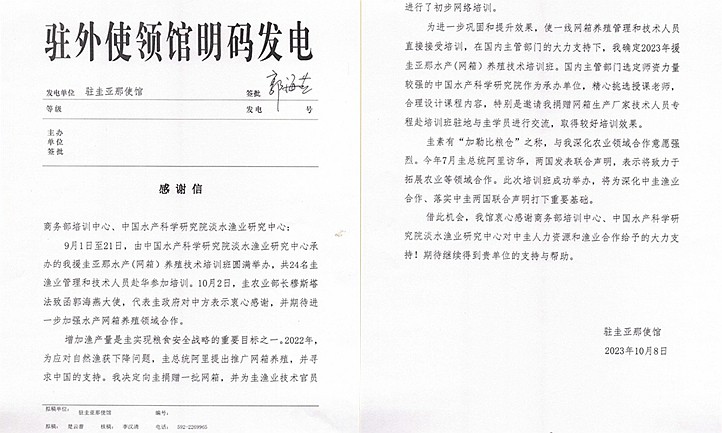 驻外使领馆明码发电
发电单位 驻圭亚那使馆 签批 郭海燕
等级 发电 号
主办
单位
签批
感谢信
商务部培训中心、中国水产科学研究院淡水渔业研究中心：
9月1日至21日，由中国水产科学研究院淡水渔业研究中心承
办的我援圭亚那水产(网箱) 养殖技术培训班圆满举办，共24名圭
渔业管理和技术人员赴华参加培训。10月2日，圭农业部长穆斯塔
法致函郭海燕大使，代表圭政府对中方表示衷心感谢，并期待进
一步加强水产网箱养殖领域合作。
增加渔产量是圭实现粮食安全战略的重要目标之一。2022年，
为应对自然渔获下降问题，圭总统阿里提出推广网箱养殖，并寻
求中国的支持。我决定向圭捐赠一批网箱，并为圭渔业技术官员
拟稿单位： 驻圭亚那使馆 编号：
拟稿： 核稿： 李汉清 电话： 592-2269965
进行了初步网络培训。
为进一步巩固和提升效果，使一线网箱养殖管理和技术人员
直接接受培训，在国内主管部门的大力支持下，我确定2023年援
圭亚那水产(网箱) 养殖技术培训班。国内主管部门选定师资力量
较强的中国水产科学研究院作为承办单位，精心挑选授课老师，
合理设计课程内容，特别是邀请我捐赠网箱生产厂家技术人员专
程赴培训班驻地与圭学员进行交流，取得较好培训效果。
圭素有“加勒比粮仓”之称，与我深化农业领域合作意愿强
烈。今年7月圭总统阿里访华，两国发表联合声明，表示将致力于
拓展农业等领域合作。此次培训班成功举办，将为深化中圭渔业
合作、落实中圭两国联合声明打下重要基础。
借此机会，我馆衷心感谢商务部培训中心、中国水产科学研
究院淡水渔业研究中心对中圭人力资源和渔业合作给予的大力支
持！期待继续得到贵单位的支持与帮助。
驻圭亚那使馆
2023年10月8日